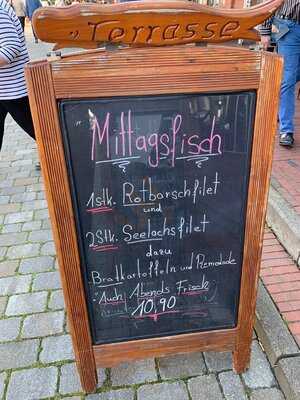 Terrasse
Mittagsfisch
1stk. Rotbarschfilet
und
2Stk. Seelachsfilet
dazu
Bratkartoffeln und Remolade
Auch Abends Frisch
10,90